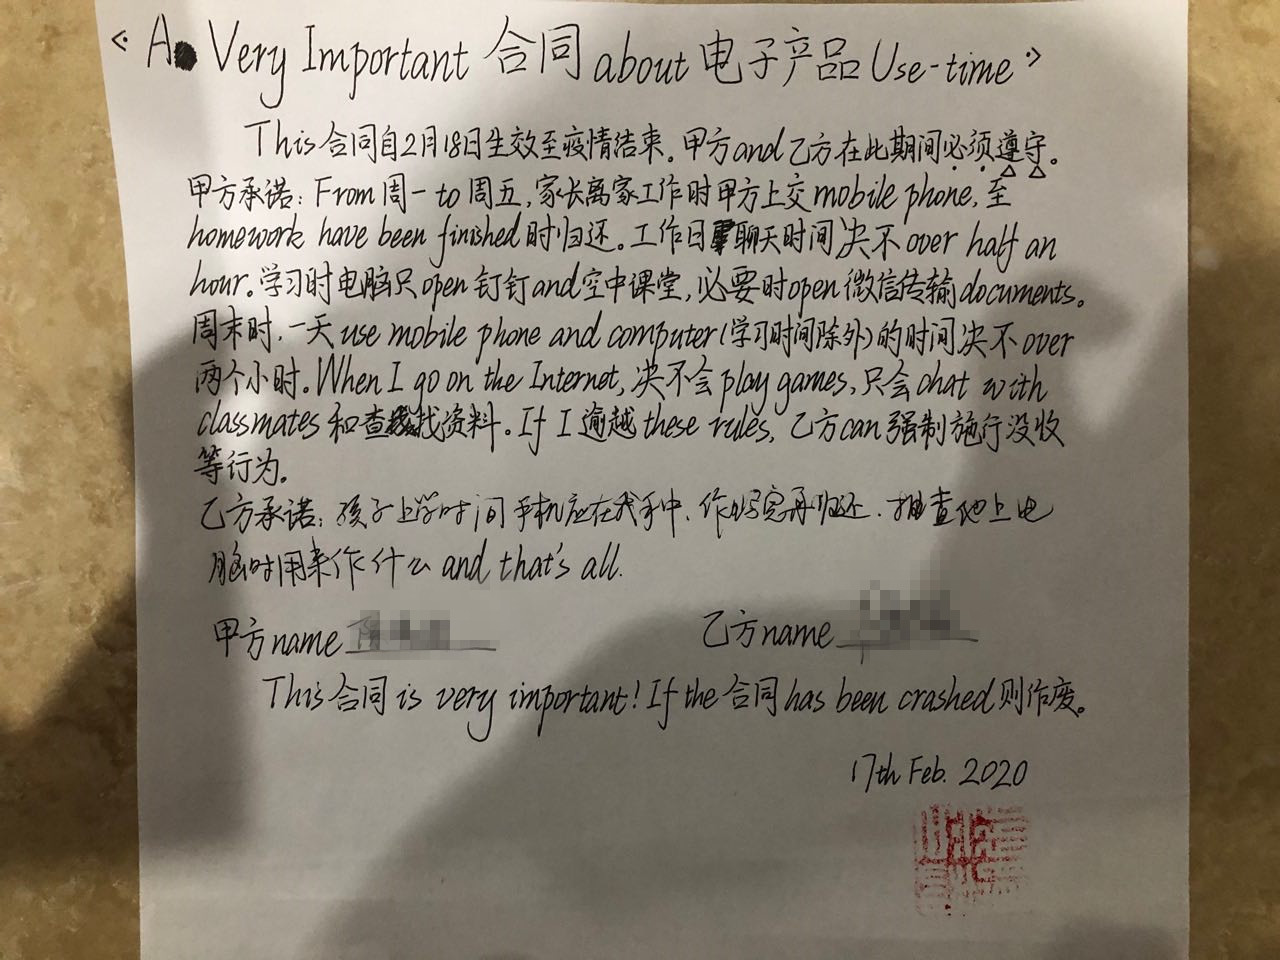 《A Very Important 合同 about 电子产品 Use-time》
This 合同自2月18日生效至疫情结束。甲方and乙方在此期间必须遵守。
甲方承诺：From周一to周五，家长离家工作时甲方上交mobile phone，至
homework have been finished时归还。工作日聊天时间决不over half an
hour。学习时电脑只open钉钉and空中课堂，必要时open微信传输documents。
周末时，一天use mobile phone and computer(学习时间除外)的时间决不over
两个小时。When I go on the Internet，决不会play games，只会chat with
classmates和查找资料。If I 逾越these rules，乙方can强制施行没收
等行为。
乙方承诺：孩子上学时间手机应在我手中、作业写完再归还．抽查他上电
脑时用来作什么 and that's all.
甲方name
乙方name
This合同is very important！If the合同has been crashed则作废。
17th Feb. 2020